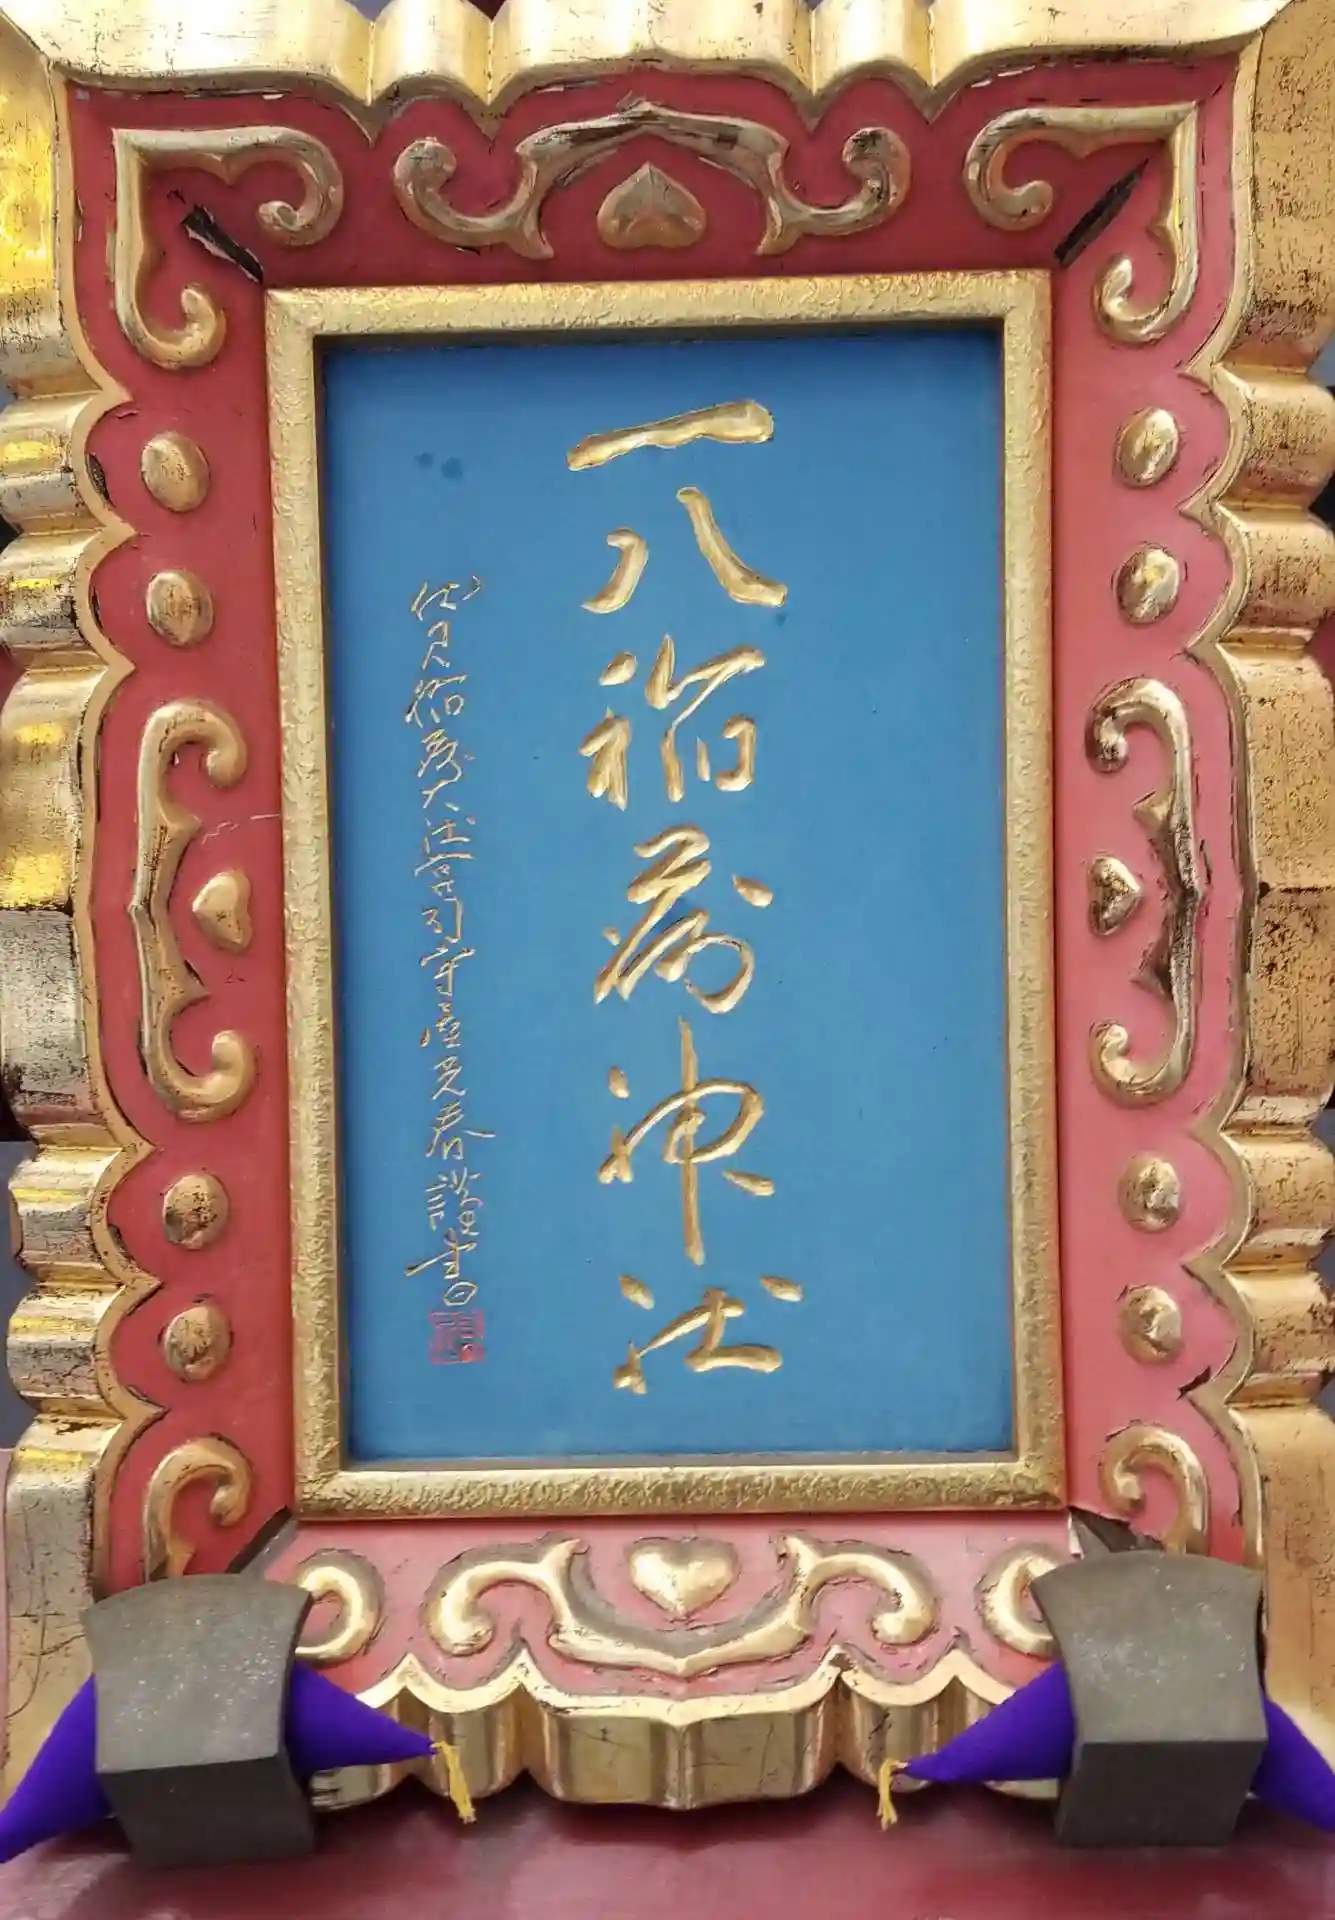 一八稲荷神社
伏見稲荷大社宮司守屋光春謹書